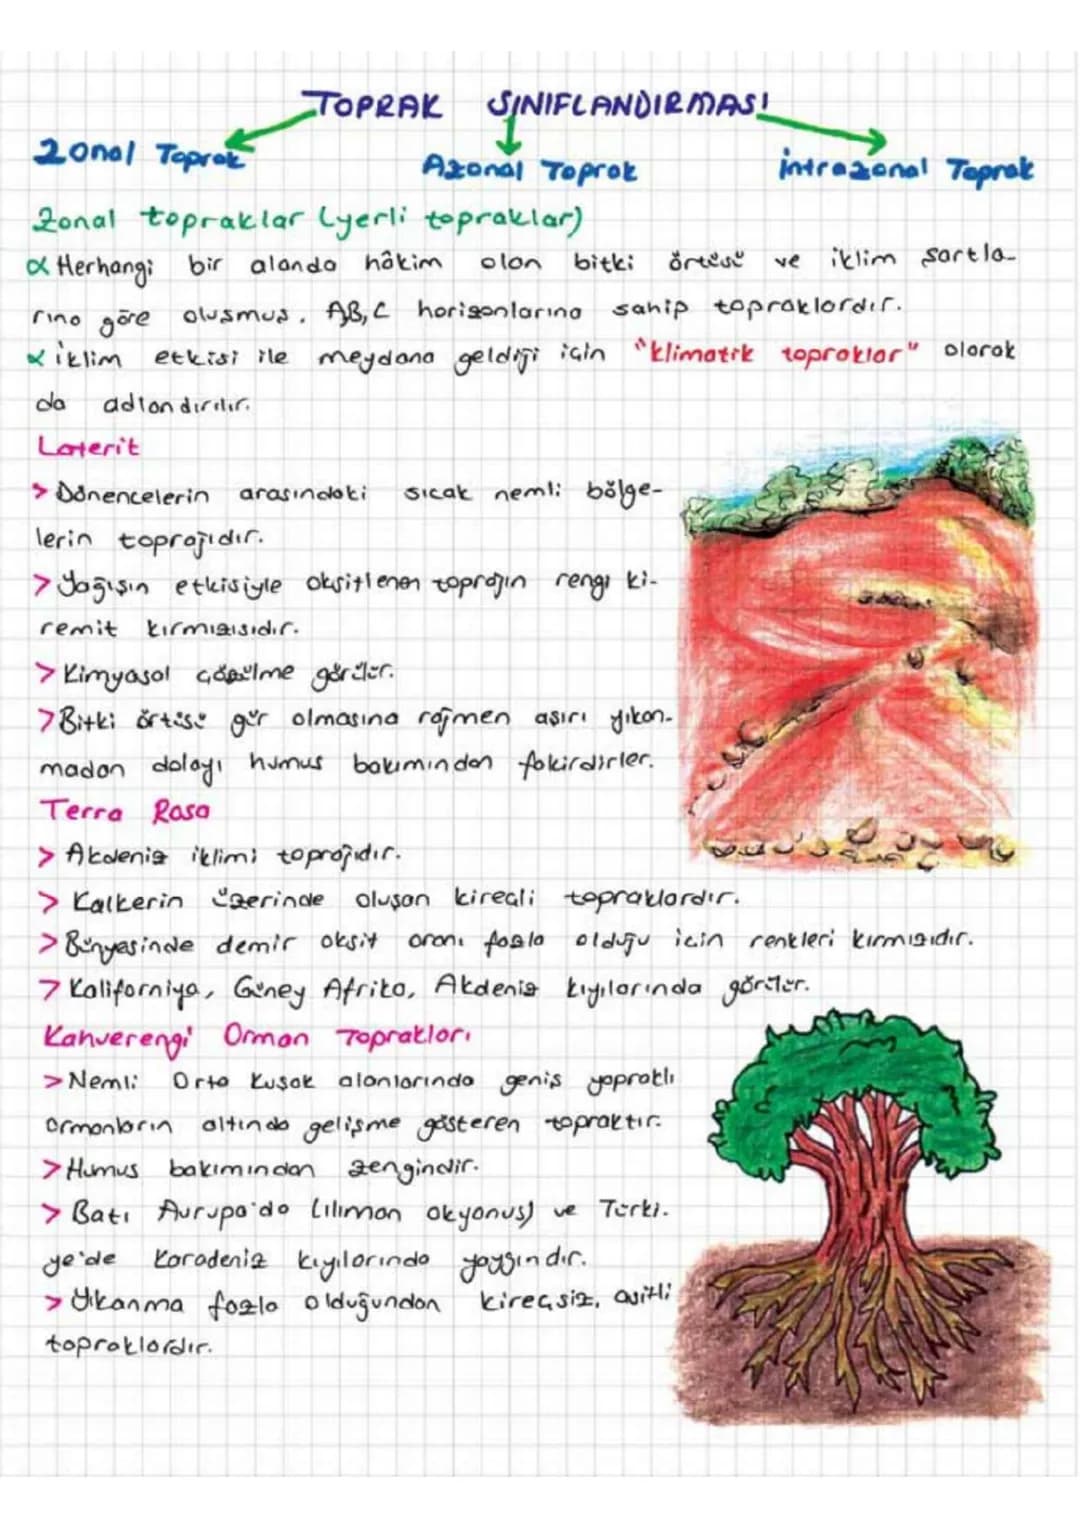 TOPRAK SINIFLANDIRMASI
Zonal Toprak Azonal Toprak İntrazonal Toprak
Zonal topraklar (yerli topraklar)
α Herhangi bir alanda hâkim olan bitki örtüsü ve iklim şartla-
rına göre oluşmuş. A,B,C horizonlarına sahip topraklardır.
α iklim etkisi ile meydana geldiği için "klimatik topraklar" olarak
da adlandırılır.
Laterit
> Dönencelerin arasındaki sıcak nemli bölge-
lerin toprağıdır.
> Yağışın etkisiyle oksitlenen toprağın rengi ki-
remit kırmızısıdır.
> Kimyasal çözülme görülür.
> Bitki örtüsü gür olmasına rağmen aşırı yıkan-
madan dolayı humus bakımından fakirdirler.
Terra Rosa
> Akdeniz iklimi toprağıdır.
> Kalkerin üzerinde oluşan kireçli topraklardır.
> Bünyesinde demir oksit oranı fazla olduğu için renkleri kırmızıdır.
> Kaliforniya, Güney Afrika, Akdeniz kıyılarında görülür.
Kahverengi Orman Toprakları
> Nemli Orta Kuşak alanlarında geniş yapraklı
ormanların altında gelişme gösteren topraktır.
> Humus bakımından zengindir.
> Batı Avrupa'da (ılıman okyonus) ve Türki-
ye'de Karadeniz kıyılarında yaygındır.
> Yıkanma fazla olduğundan kireçsiz, asitli
topraklardır.